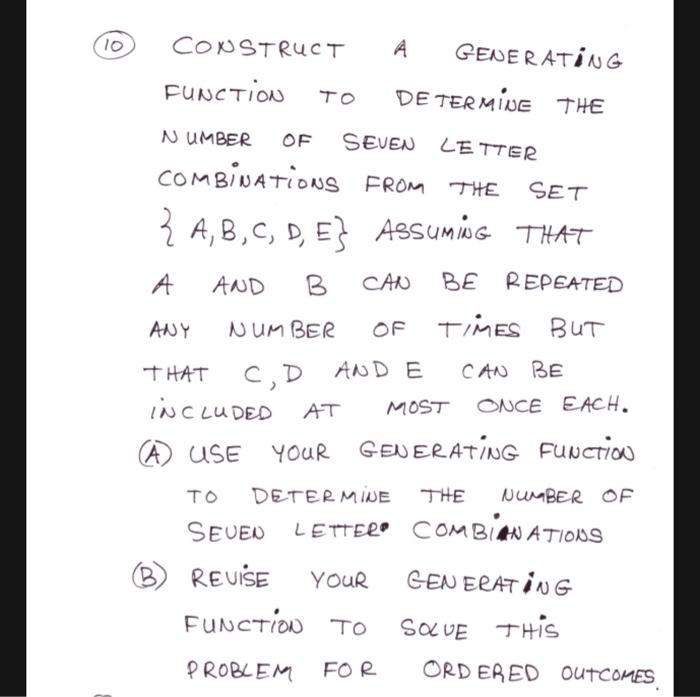 10 CONSTRUCT A GENERATING
FUNCTION TO DETERMINE THE
NUMBER OF SEVEN LETTER
COMBINATIONS FROM THE SET
{ A, B, C, D, E } ASSUMING THAT
A AND B CAN BE REPEATED
ANY NUMBER OF TIMES BUT
THAT C, D AND E CAN BE
INCLUDED AT MOST ONCE EACH.
(A) USE YOUR GENERATING FUNCTION
TO DETERMINE THE NUMBER OF
SEVEN LETTER COMBIANATIONS
(B) REVISE YOUR GENERATING
FUNCTION TO SOLVE THIS
PROBLEM FOR ORDERED OUTCOMES.